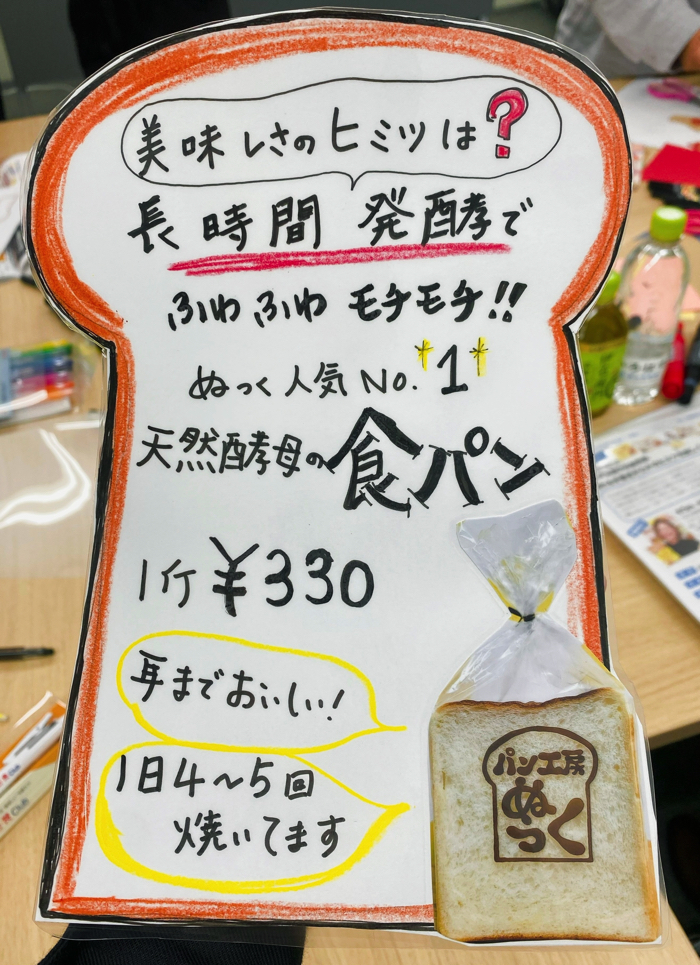 美味しさのヒミツは?
長時間発酵で
ふわふわモチモチ!!
ぬっく人気No.1
天然酵母の食パン
1斤¥330
耳までおいしい!
1日4~5回
焼いてます
パン工房
ぬっく